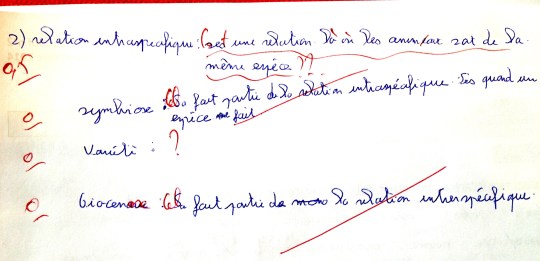 2) relation intraspécifique : C'est une relation là où les animaux sont de la
même espèce ??
0,5
symbiose : Ça fait partie de la relation intraspécifique. quand un
espèce fait
0
variéti : ?
0
biocenose : Ça fait partie de la relation interspécifique.
0